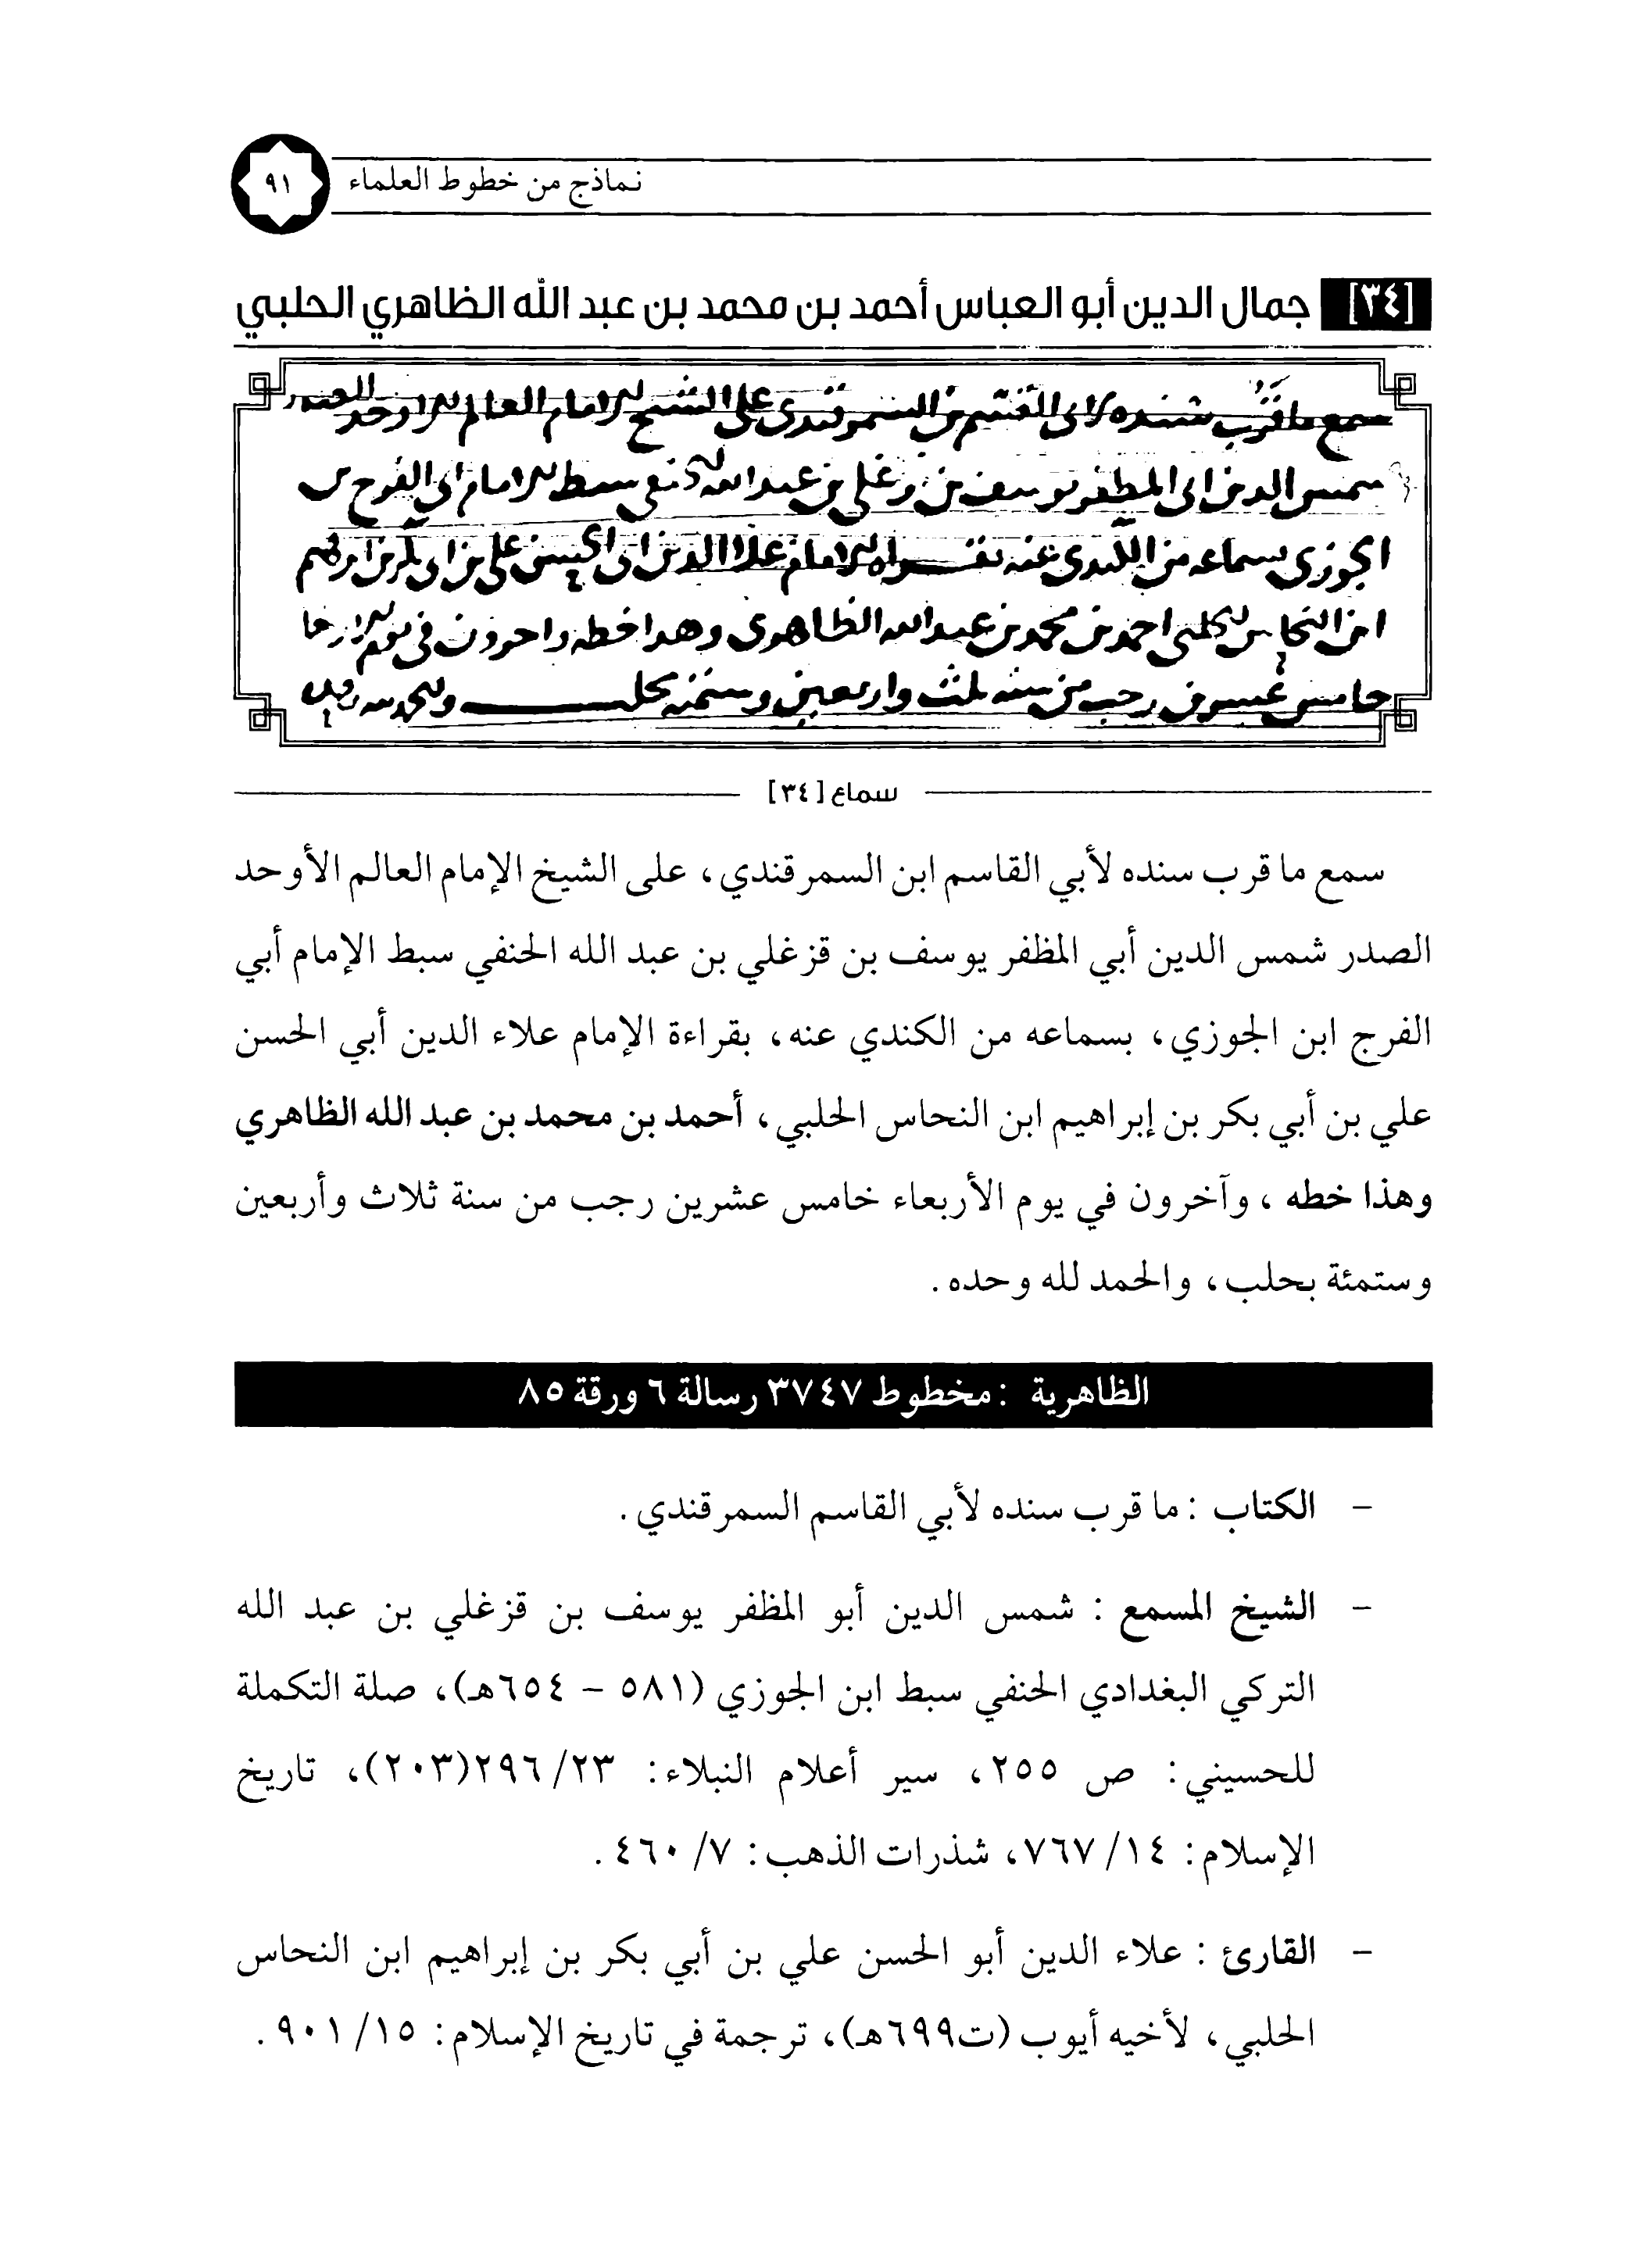 نماذج من خطوط العلماء
٩١
[٣٤] جمال الدين أبو العباس أحمد بن محمد بن عبد الله الظاهري الحلبي
سمع ما قرب سنده لابي القسم بن السمرقندي على الشيخ الامام العالم الاوحد الصدر
شمس الدين ابي المظفر يوسف بن قزغلي بن عبد الله الحنفي سبط الامام ابي الفرج بن
الجوزي بسماعه من الكندي عنه بقراه الامام علا الدين ابي الحسن علي بن ابي بكر بن ابرهيم
ابن النحاس الحلبي احمد بن محمد بن عبد الله الظاهري وهدا خطه واخرون في يوم الاربعا
خامس عشرين رجب من سنه ثلث واربعين وستمئه بحلب والحمد لله وحده
سماع [٣٤]
سمع ما قرب سنده لأبي القاسم ابن السمرقندي، على الشيخ الإمام العالم الأوحد
الصدر شمس الدين أبي المظفر يوسف بن قزغلي بن عبد الله الحنفي سبط الإمام أبي
الفرج ابن الجوزي، بسماعه من الكندي عنه، بقراءة الإمام علاء الدين أبي الحسن
علي بن أبي بكر بن إبراهيم ابن النحاس الحلبي، أحمد بن محمد بن عبد الله الظاهري
وهذا خطه ، وآخرون في يوم الأربعاء خامس عشرين رجب من سنة ثلاث وأربعين
وستمئة بحلب، والحمد لله وحده.
الظاهرية : مخطوط ٣٧٤٧ رسالة ٦ ورقة ٨٥
- الكتاب : ما قرب سنده لأبي القاسم السمرقندي.
- الشيخ المسمع : شمس الدين أبو المظفر يوسف بن قزغلي بن عبد الله
التركي البغدادي الحنفي سبط ابن الجوزي (٥٨١ - ٦٥٤هـ)، صلة التكملة
للحسيني: ص ٢٥٥، سير أعلام النبلاء: ٢٣/ ٢٩٦(٢٠٣)، تاريخ
الإسلام: ١٤/ ٧٦٧، شذرات الذهب: ٧/ ٤٦٠.
- القارئ : علاء الدين أبو الحسن علي بن أبي بكر بن إبراهيم ابن النحاس
الحلبي، لأخيه أيوب (ت٦٩٩هـ)، ترجمة في تاريخ الإسلام: ١٥/ ٩٠١.